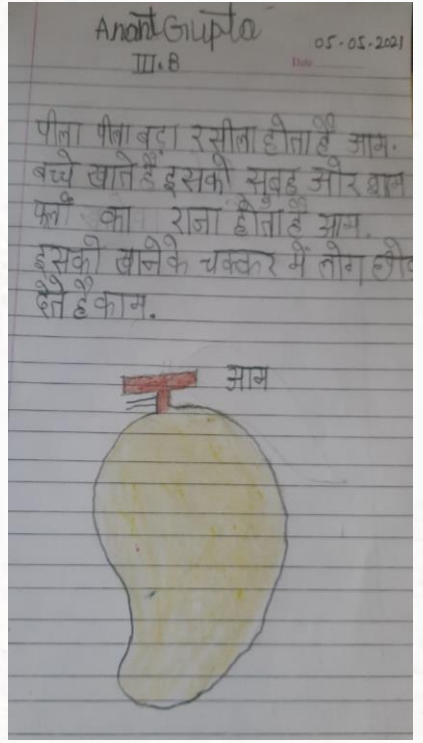 Anant Gupta
05-05-2021
III.B
Date
पीला पीला बड़ा रसीला होता है आम.
बच्चे खाते हैं इसको सुबह और शाम
फलों का राजा होता है आम.
इसको खाने के चक्कर में लोग छोड़
देते है काम.
आम